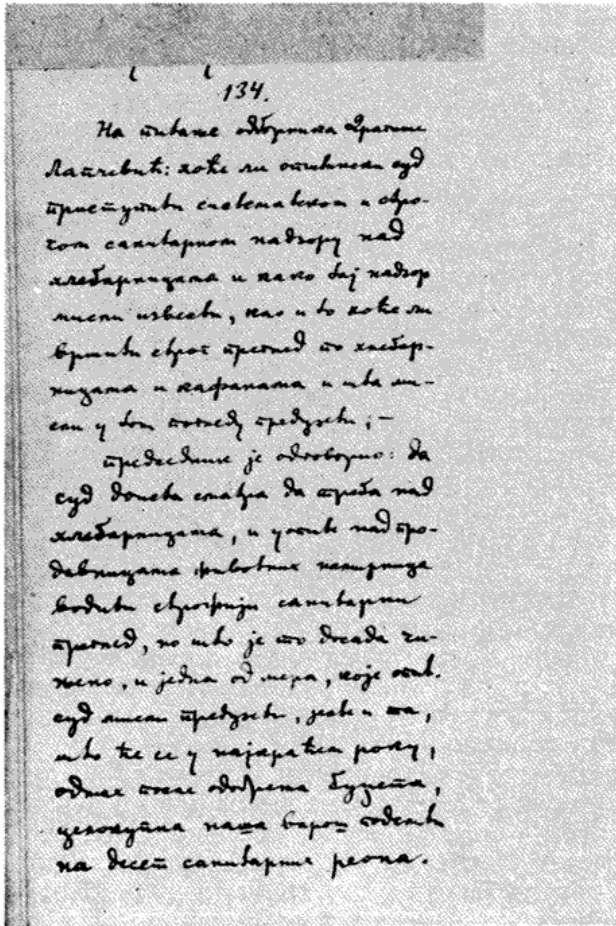 134.
На питање одборника Драгише
Лапчевић: хоће ли општински суд
приступити систематском и стро-
гом санитарном надзору над
хлебарницама и како тај надзор
мисли извести, као и то хоће ли
вршити строг преглед по хлебар-
ницама и кафанама и шта ми-
сли у том погледу предузети; —
председник је одговорио: да
суд доиста сматра да треба над
хлебарницама, и уопште над про-
давницама животних намирница
водити строжији санитарни
преглед, но што је то досада чи-
њено, и једна од мера, које општ.
суд мисли предузети, јесте и та,
што ће се у најкраћем року,
одмах после одобрења буџета,
целокупна наша варош поделити
на десет санитарних реона.